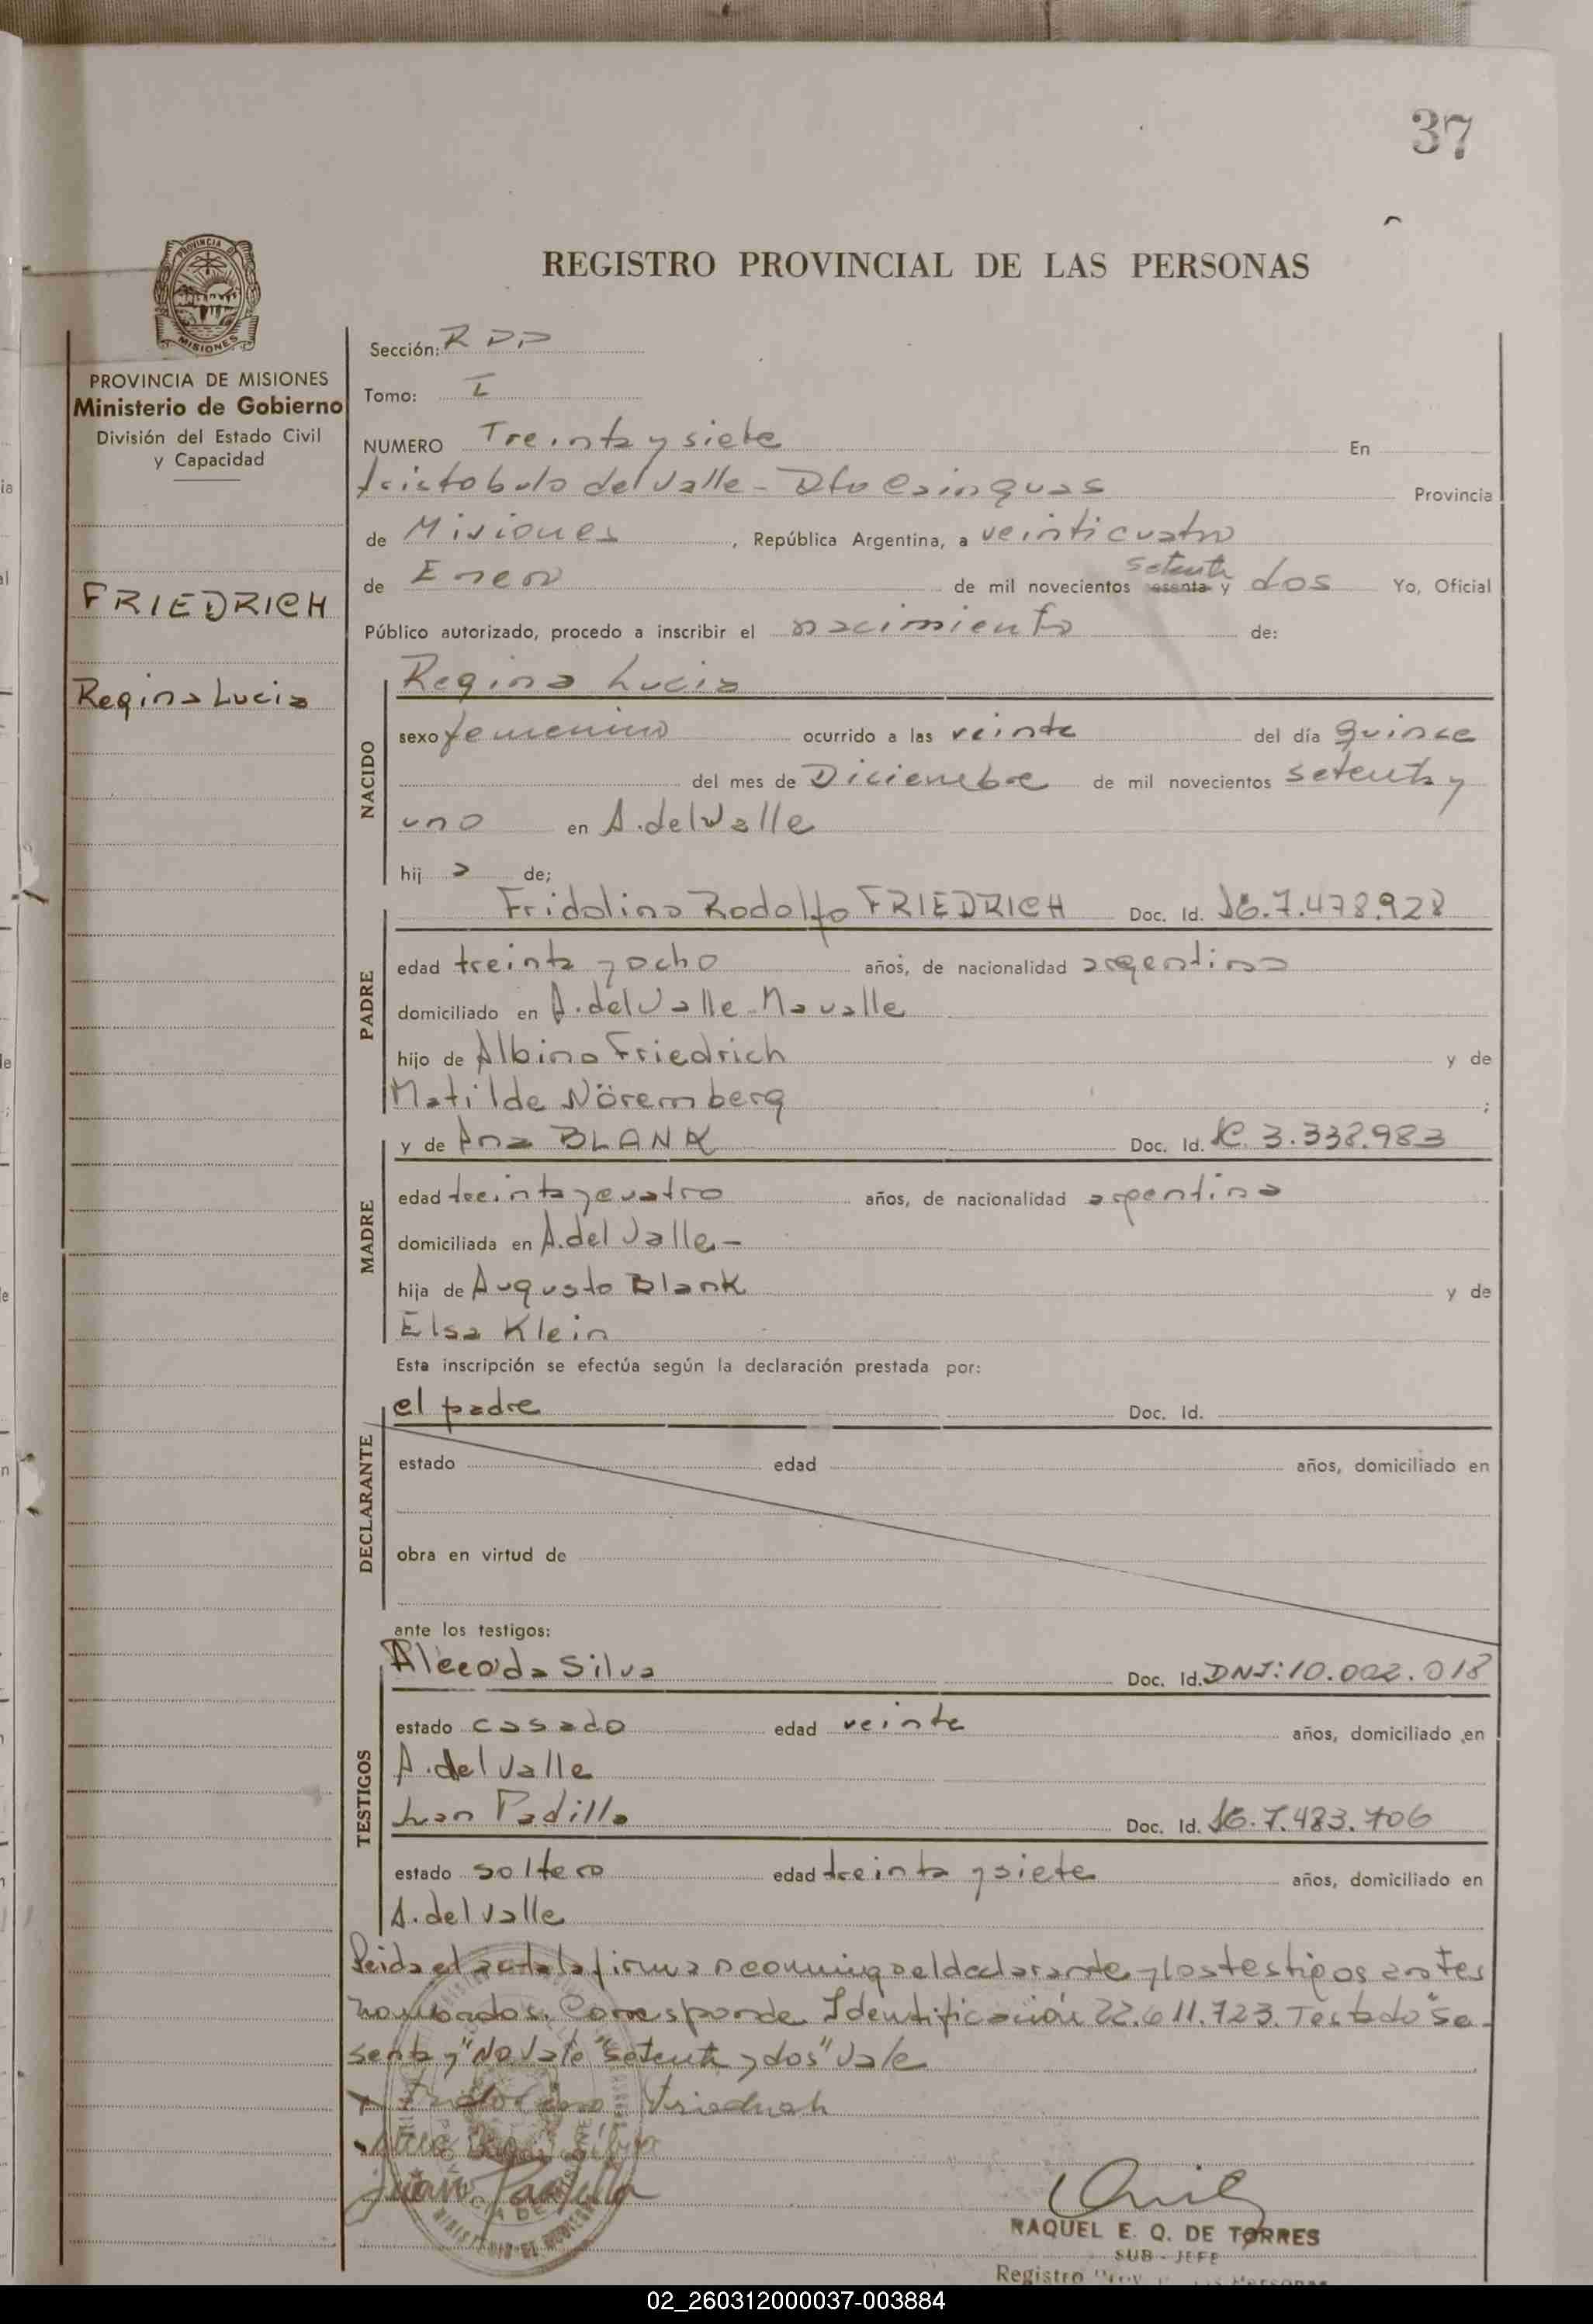 37
REGISTRO PROVINCIAL DE LAS PERSONAS
PROVINCIA DE MISIONES
Ministerio de Gobierno
División del Estado Civil
y Capacidad
FRIEDRICH
Regina Lucia
Sección: RPP
Tomo: I
NUMERO Treinta y siete En
Aristobulo del Valle - Dto Cainguas Provincia
de Misiones, República Argentina, a veinticuatro
de Enero de mil novecientos sesenta y setenta dos Yo, Oficial
Público autorizado, procedo a inscribir el nacimiento de:
NACIDO
Regina Lucia
sexo femenino ocurrido a las veinte del día quince
del mes de Diciembre de mil novecientos setenta y
uno en A. del Valle
hij a de;
PADRE
Fridolino Rodolfo FRIEDRICH Doc. Id. 7.478.928
edad treinta y ocho años, de nacionalidad argentino
domiciliado en A. del Valle
hijo de Albino Friedrich y de
Matilde Nöremberg ;
MADRE
y de Ana BLANK Doc. Id. 3.338.983
edad treinta y cuatro años, de nacionalidad argentina
domiciliada en A. del Valle -
hija de Augusto Blank y de
Elsa Klein
Esta inscripción se efectúa según la declaración prestada por:
DECLARANTE
el padre Doc. Id.
estado edad años, domiciliado en
obra en virtud de
ante los testigos:
TESTIGOS
Silva Doc. Id. DNI: 10.002.018
estado casado edad veinte años, domiciliado en
A. del Valle
Juan Padilla Doc. Id. 7.483.706
estado soltero edad treinta y siete años, domiciliado en
A. del Valle
Leida el acta la firman conmigo el declarante y los testigos antes
nombrados. Corresponde Identificación 22.611.723. Testado "se-
senta y" No Vale "setenta y dos" Vale
Fridolino Friedrich
Silva
Juan Padilla
RAQUEL E. Q. DE TORRES
SUB - JEFE
Registro
02_260312000037-003884